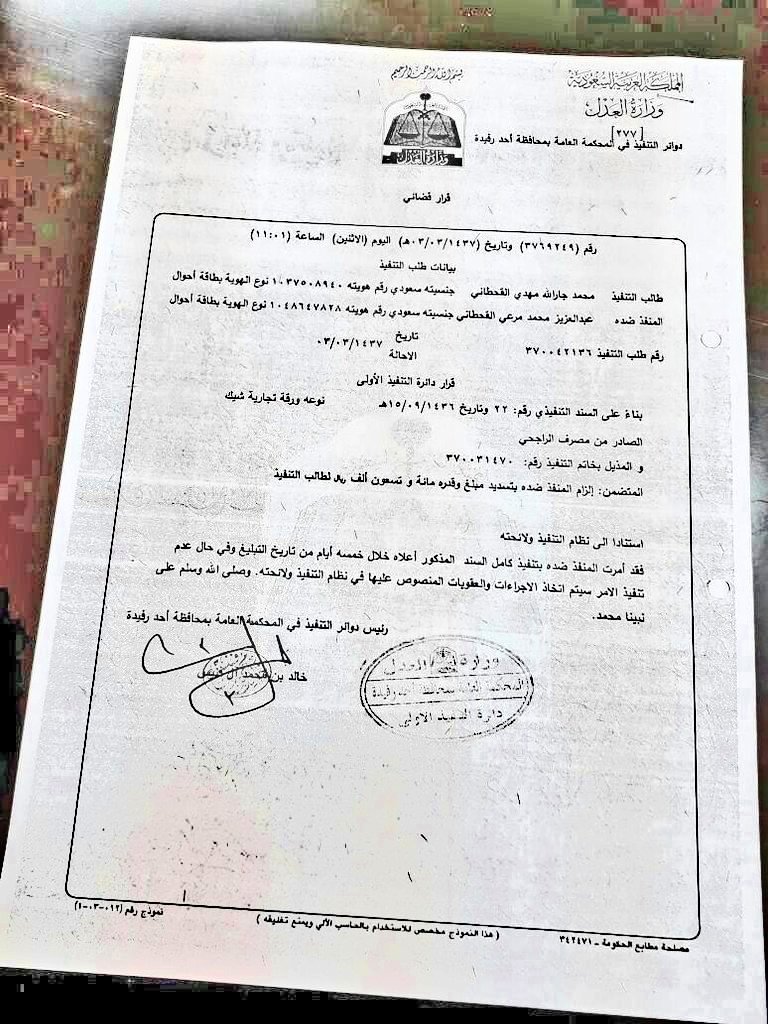 بسم الله الرحمن الرحيم
المملكة العربية السعودية
وزارة العدل
[٢٧٧]
دوائر التنفيذ في المحكمة العامة بمحافظة أحد رفيدة
وزارة العدل
قرار قضائي
رقم (٣٧٦٩٢٤٩) وتاريخ (٠٣/٠٣/١٤٣٧هـ) اليوم (الاثنين) الساعة (١١:٠١)
بيانات طلب التنفيذ
طالب التنفيذ محمد جارالله مهدي القحطاني جنسيته سعودي رقم هويته ١٠٣٧٥٠٨٩٤٠ نوع الهوية بطاقة أحوال
المنفذ ضده عبدالعزيز محمد مرعي القحطاني جنسيته سعودي رقم هويته ١٠٤٨٦٤٧٨٢٨ نوع الهوية بطاقة أحوال
رقم طلب التنفيذ ٣٧٠٠٤٢١٣٦ تاريخ الاحالة ٠٣/٠٣/١٤٣٧
قرار دائرة التنفيذ الأولى
بناءً على السند التنفيذي رقم: ٢٢ وتاريخ ١٥/٠٩/١٤٣٦هـ نوعه ورقة تجارية شيك
الصادر من مصرف الراجحي
و المذيل بخاتم التنفيذ رقم: ٣٧٠٠٣١٤٧٠
المتضمن: إلزام المنفذ ضده بتسديد مبلغ وقدره مائة و تسعون ألف ريال لطالب التنفيذ
استنادا الى نظام التنفيذ ولائحته
فقد أمرت المنفذ ضده بتنفيذ كامل السند المذكور أعلاه خلال خمسه أيام من تاريخ التبليغ وفي حال عدم
تنفيذ الامر سيتم اتخاذ الاجراءات والعقوبات المنصوص عليها في نظام التنفيذ ولائحته. وصلى الله وسلم على
نبينا محمد.
رئيس دوائر التنفيذ في المحكمة العامة بمحافظة أحد رفيدة
خالد بن محمد آل
وزارة العدل
المحكمة العامة بمحافظة أحد رفيدة
دائرة التنفيذ الأولى
نموذج رقم (١٢-٠٣-٠١)
( هذا النموذج مخصص للاستخدام بالحاسب الآلي ويمنع تغليفه )
مصلحة مطابع الحكومة - ٣٤٢٤٧١